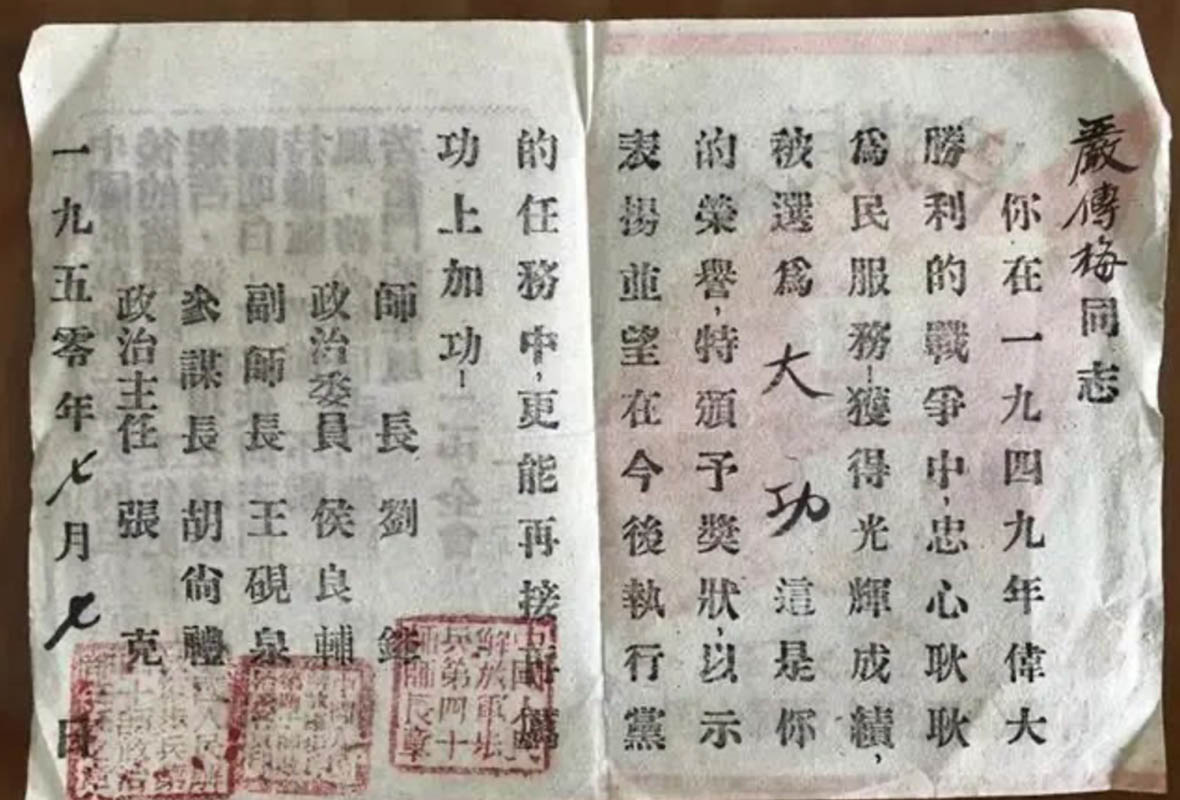 嚴傳梅同志
你在一九四九年偉大
勝利的戰爭中，忠心耿耿
為民服務！獲得光輝成績，
被選為大功這是你
的榮譽，特頒予獎狀，以示
表揚並望在今後執行黨
的任務中，更能再接再厲
功上加功！
師長劉
政治委員侯良輔
副師長王硯泉
參謀長胡尚禮
政治主任張克
一九五零年七月七日